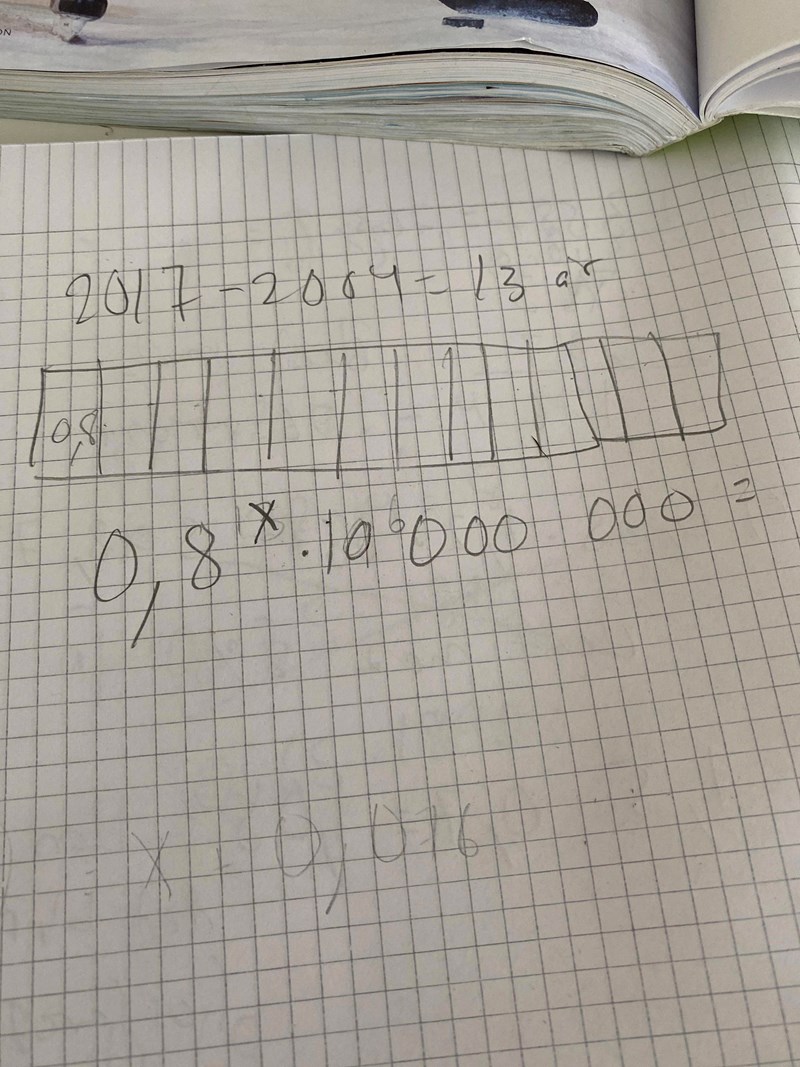 ON
2017-2004=13 år
0,8
0,8^x · 10 000 000 =
x = 0,076